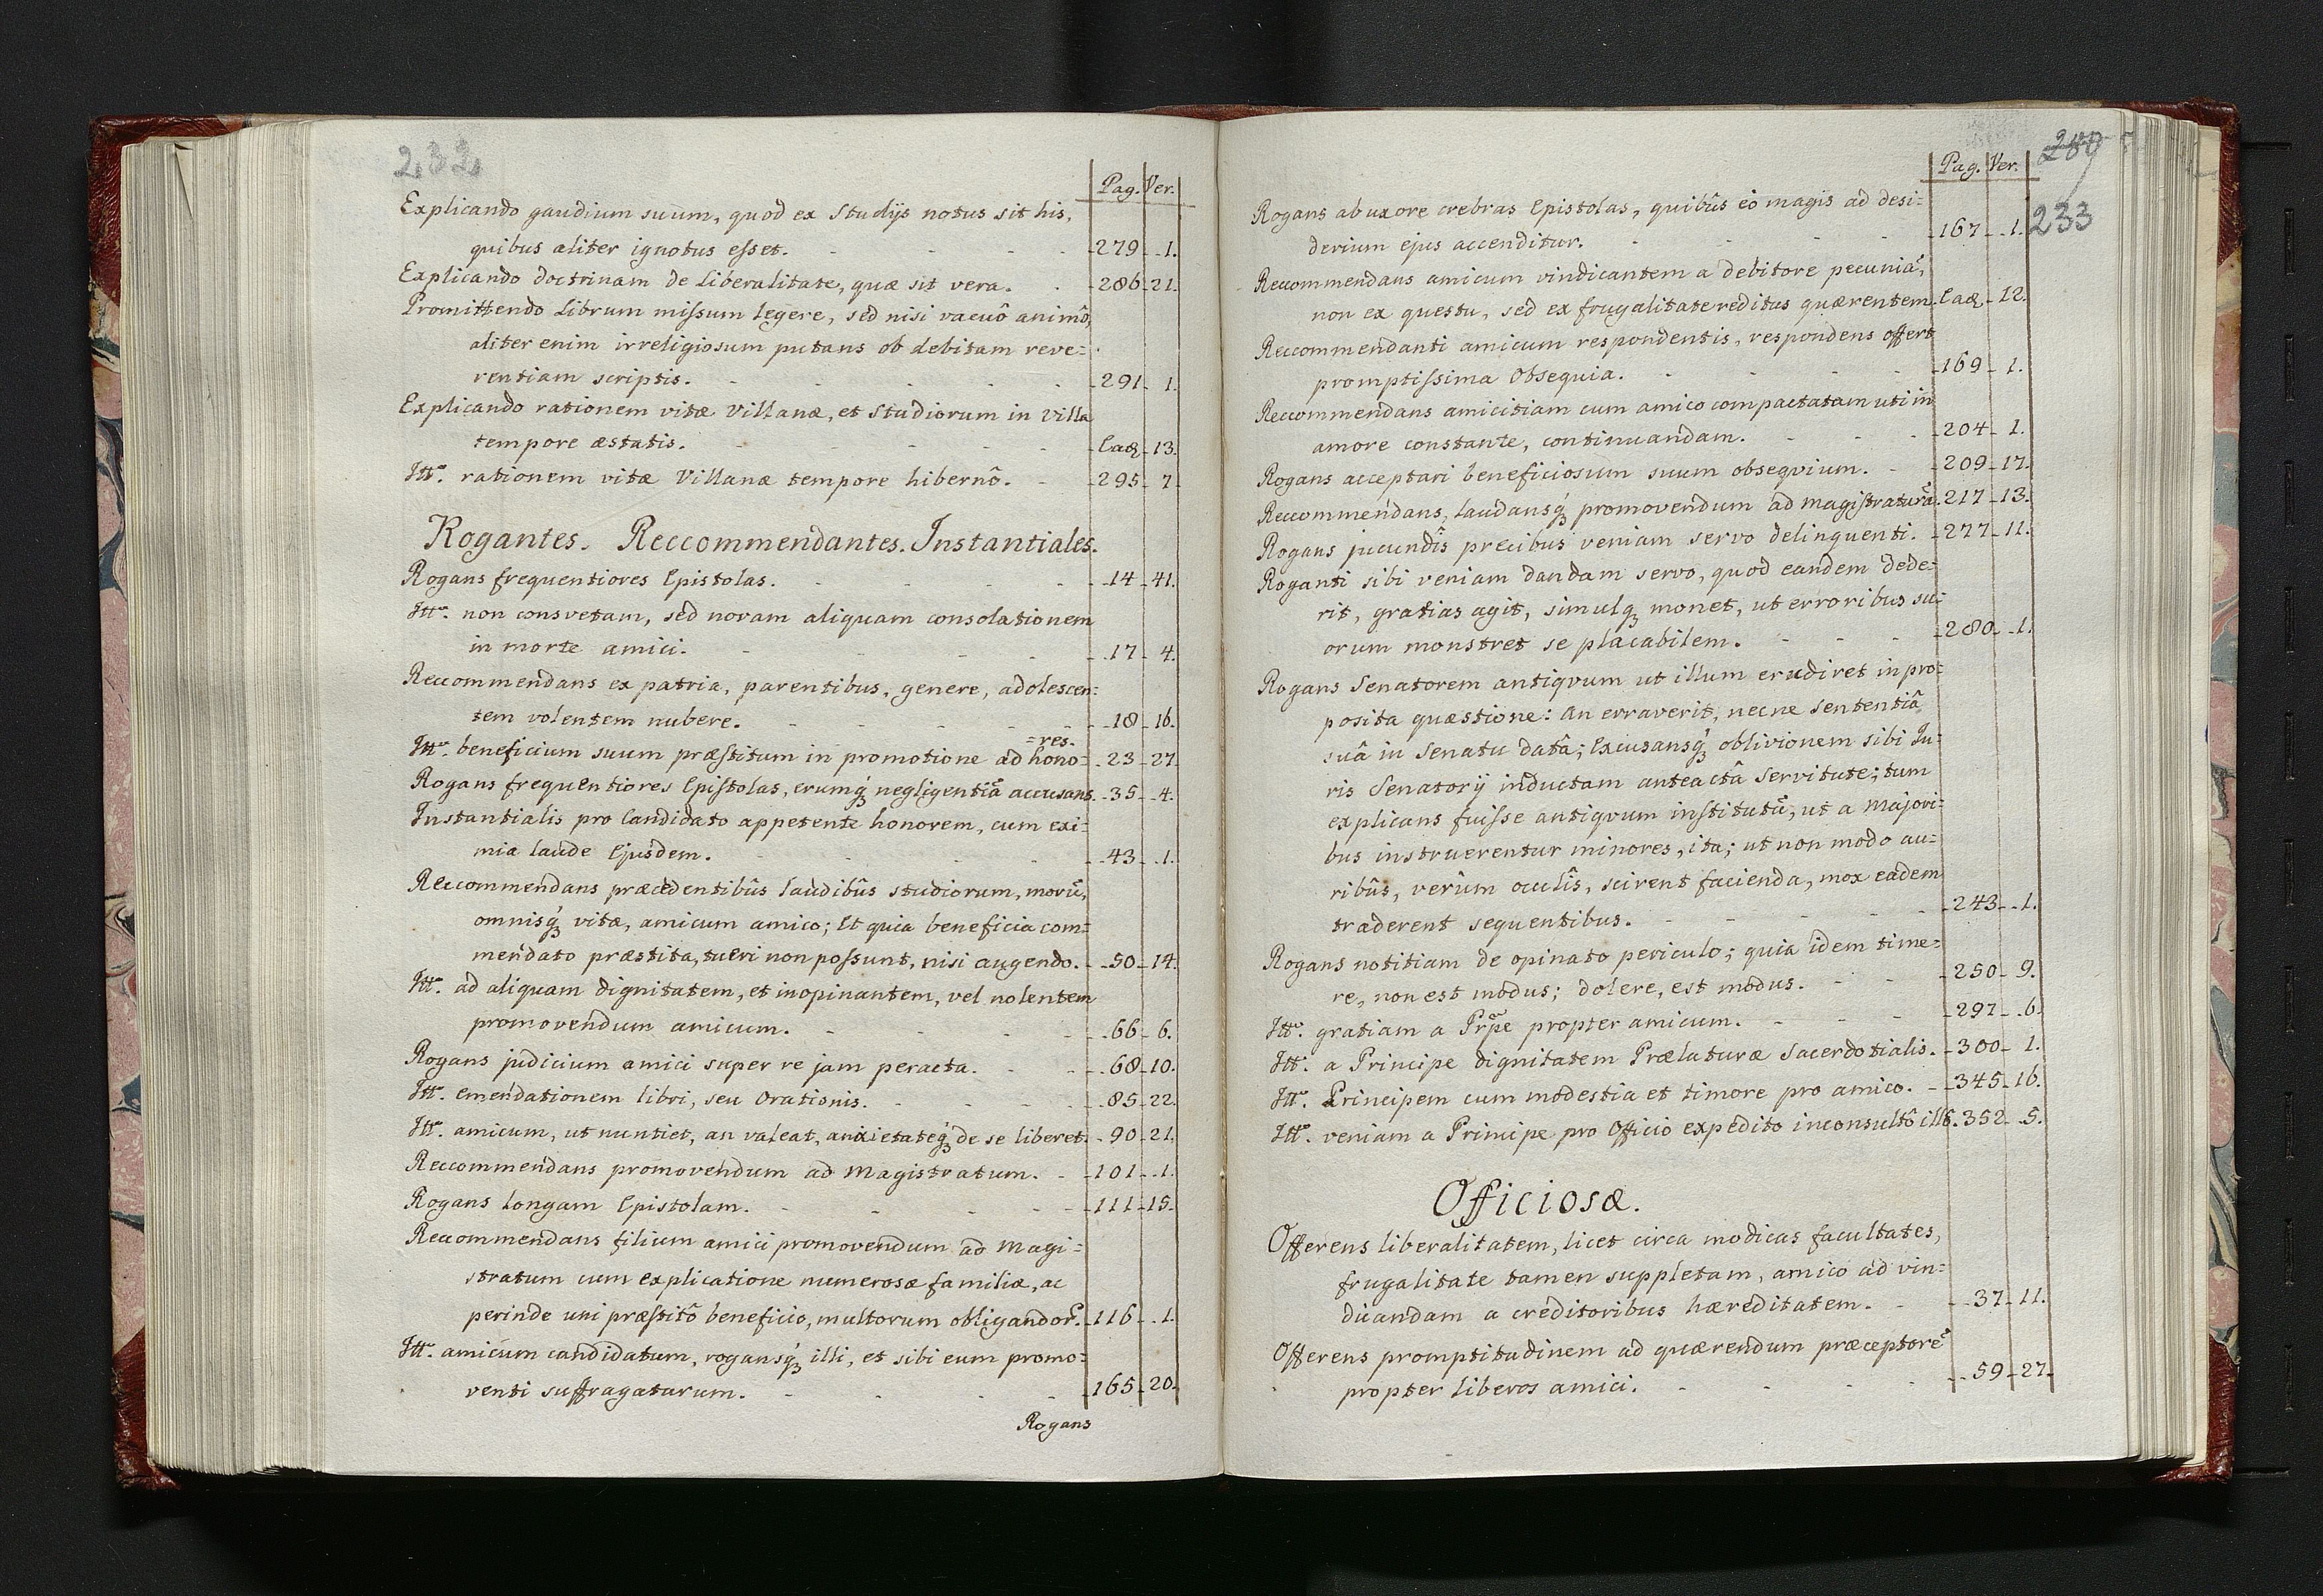 232
Pag. Ver.
Explicando gaudium suum, quod ex Studijs notus sit his,
quibus aliter ignotus esset. - 279 - 1.
Explicando doctrinam de Liberalitate, quæ sit vera. - 286 - 21.
Promittendo Librum missum legere, sed nisi vacuô animô,
aliter enim irreligiosum putans ob debitam reve=
rentiam scriptis. - 291 - 1.
Explicando rationem vitæ Villanæ, et Studiorum in Villa
tempore æstatis. - Ead - 13.
Itt. rationem vitæ Villanæ tempore hibernô. - 295 - 7.
Rogantes. Reccommendantes. Instantiales.
Rogans frequentiores Epistolas. - 14 - 41.
Itt. non consvetam, sed novam aliquam consolationem
in morte amici. - 17 - 4.
Reccommendans ex patria, parentibus, genere, adolescen=
tem volentem nubere. - 18 - 16.
=res.
Itt. beneficium suum præstitum in promotione ad hono= - 23 - 27.
Rogans frequentiores Epistolas, erumq́ʒ negligentiã accusans. - 35 - 4.
Instantialis pro Candidato appetente honorem, cum exi=
mia laude Ejusdem. - 43 - 1.
Reccommendans præcedentibûs laudibûs studiorum, morũ,
omnisq́ʒ vitæ, amicum amico; Et quia beneficia com=
mendato præstita, tueri non possunt, nisi augendo. - 50 - 14.
Itt. ad aliquam dignitatem, et inopinantem, vel nolentem
promovendum amicum. - 66 - 6.
Rogans judicium amici super re jam peracta. - 68 - 10.
Itt. emendationem libri, seu Orationis. - 85 - 22.
Itt. amicum, ut nuntiet, an valeat, anxietateq́ʒ de se liberet. - 90 - 21.
Reccommendans promovendum ad Magistratum. - 101 - 1.
Rogans longam Epistolam. - 111 - 15.
Reccommendans filium amici promovendum ad Magi=
stratum cum explicatione numerosæ familiæ, ac
perinde uni præstitô beneficio, multorum obligandor̃. - 116 - 1.
Itt. amicum candidatum, rogansq́ʒ illi, et sibi eum promo=
venti suffragaturum. - 165 - 20.
Rogans
Pag. Ver.
233
Rogans ab uxore crebras Epistolas, quibûs eô magis ad desi=
derium ejus accenditur. - 167 - 1.
Reccommendans amicum vindicantem a debitore pecuniã,
non ex questu, sed ex frugalitate reditus quærentem. Ead - 12.
Reccommendanti amicum respondentis, respondens offert
promptissima Obsequia. - 169 - 1.
Reccommendans amicitiam cum amico compactatam uti in
amore constante, continuandam. - 204 - 1.
Rogans acceptari beneficiosum suum obseqvium. - 209 - 17.
Reccommendans, laudansq́ʒ promovendum ad Magistraturã. 217 - 13.
Rogans jucundîs precibus veniam servo delinquenti. - 277 - 11.
Roganti sibi veniam dandam servo, quod eandem dede=
rit, gratias agit, simulqʒ monet, ut erroribus su=
orum monstret se placabilem. - 280 - 1.
Rogans Senatorem antiqvum ut illum erudiret in pro=
posita quæstione: An erraverit, necne sententiâ
suâ in Senatu datâ; Excusansq́ʒ oblivionem sibi Ju=
ris Senatorÿ inductam anteactâ Servitute; tum
explicans fuisse antiqvum institutũ, ut a Majori=
bus instruerentur minores, ita; ut non modo au=
ribûs, verùm oculîs, scirent facienda, mox eadem
traderent sequentibus. - 243 - 1.
Rogans notitiam de opinato periculo; quia idem time=
re, non est modus; dolere, est modus. - 250 - 9.
Itt. gratiam a Prp̃e propter amicum. - 297 - 6.
Itt. a Principe dignitatem Prælaturæ Sacerdotialis. - 300 - 1.
Itt. Principem cum modestia et timore pro amico. - 345 - 16.
Itt. veniam a Principe pro Officio expedito inconsultô illô. 352 - 5.
Officiosæ.
Offerens liberalitatem, licet circa modicas facultates,
frugalitate tamen suppletam, amico ad vin=
dicandam a creditoribus hæreditatem. - 37 - 11.
Offerens promptitudinem ad quærendum præceptorẽ
propter liberos amici. - 59 - 27.